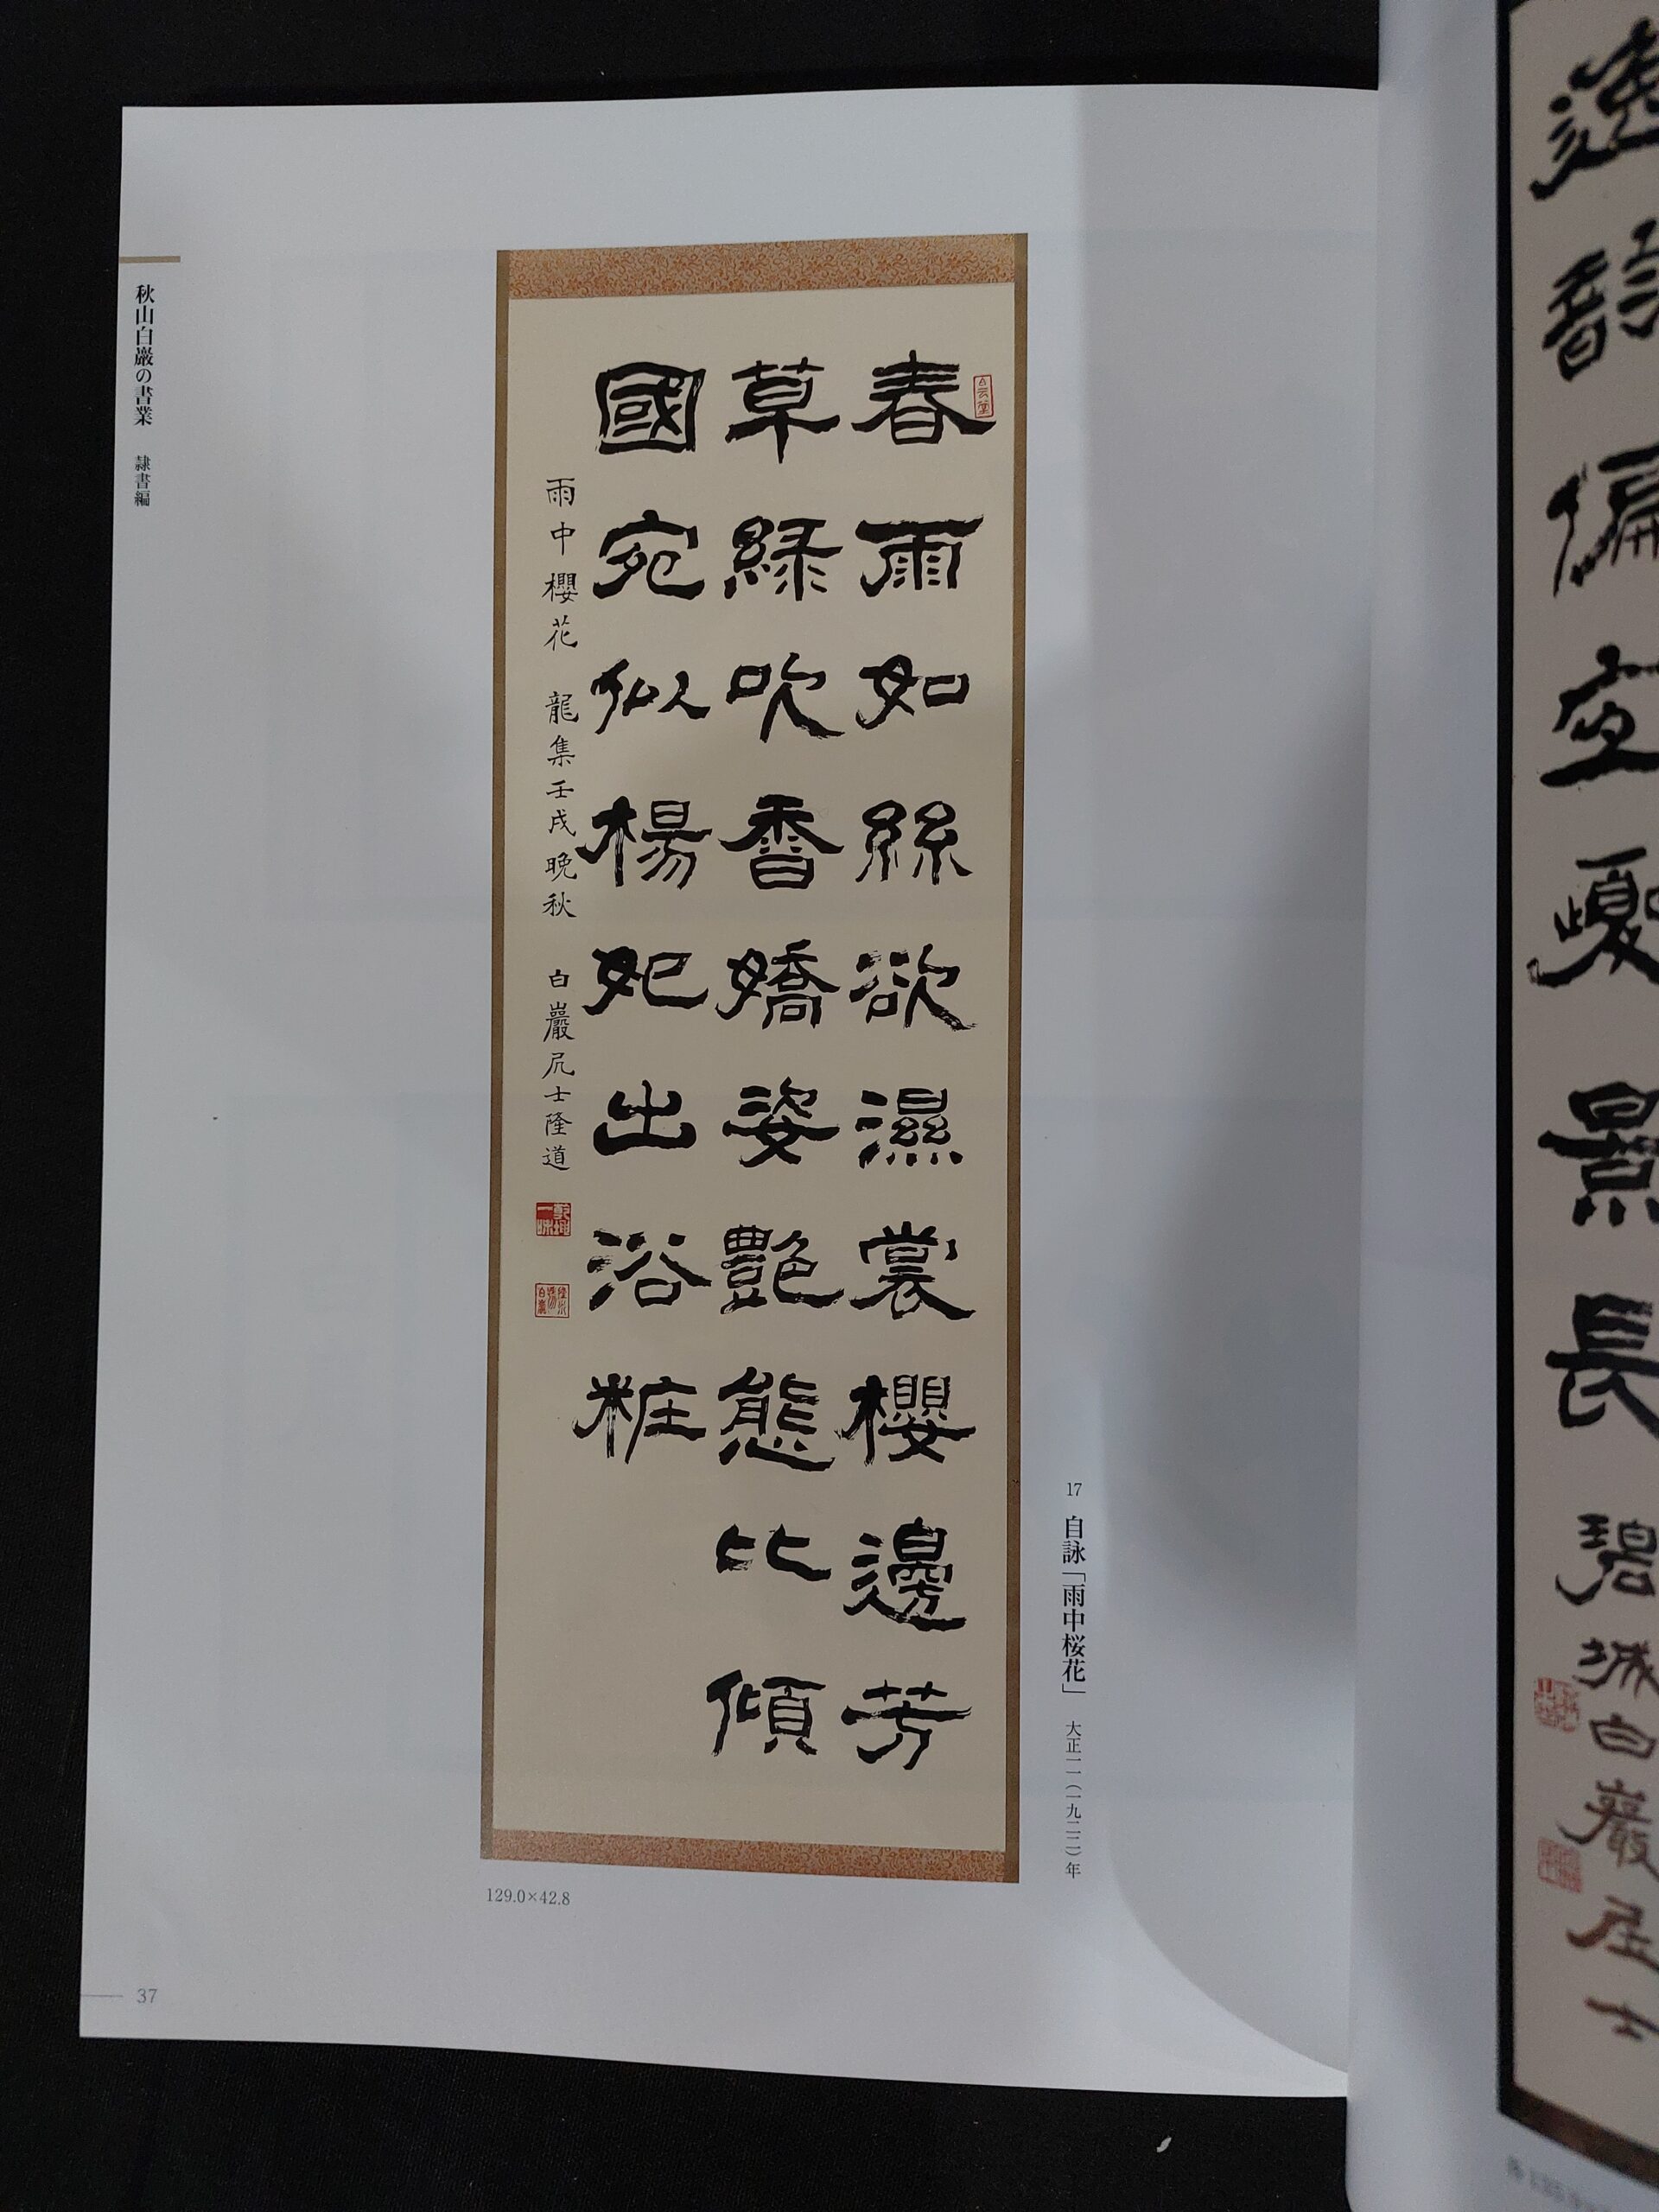 春雨如絲欲濕裳櫻邊芳
草緑吹香嬌姿艶態比傾
國宛似楊妃出浴粧
雨中櫻花 龍集壬戌晩秋 白巖凥士隆道
17 自詠「雨中桜花」 大正一一(一九二二)年
129.0×42.8
秋山白巖の書業 隷書編
37
景
長
碧
城
白
巖
居
士